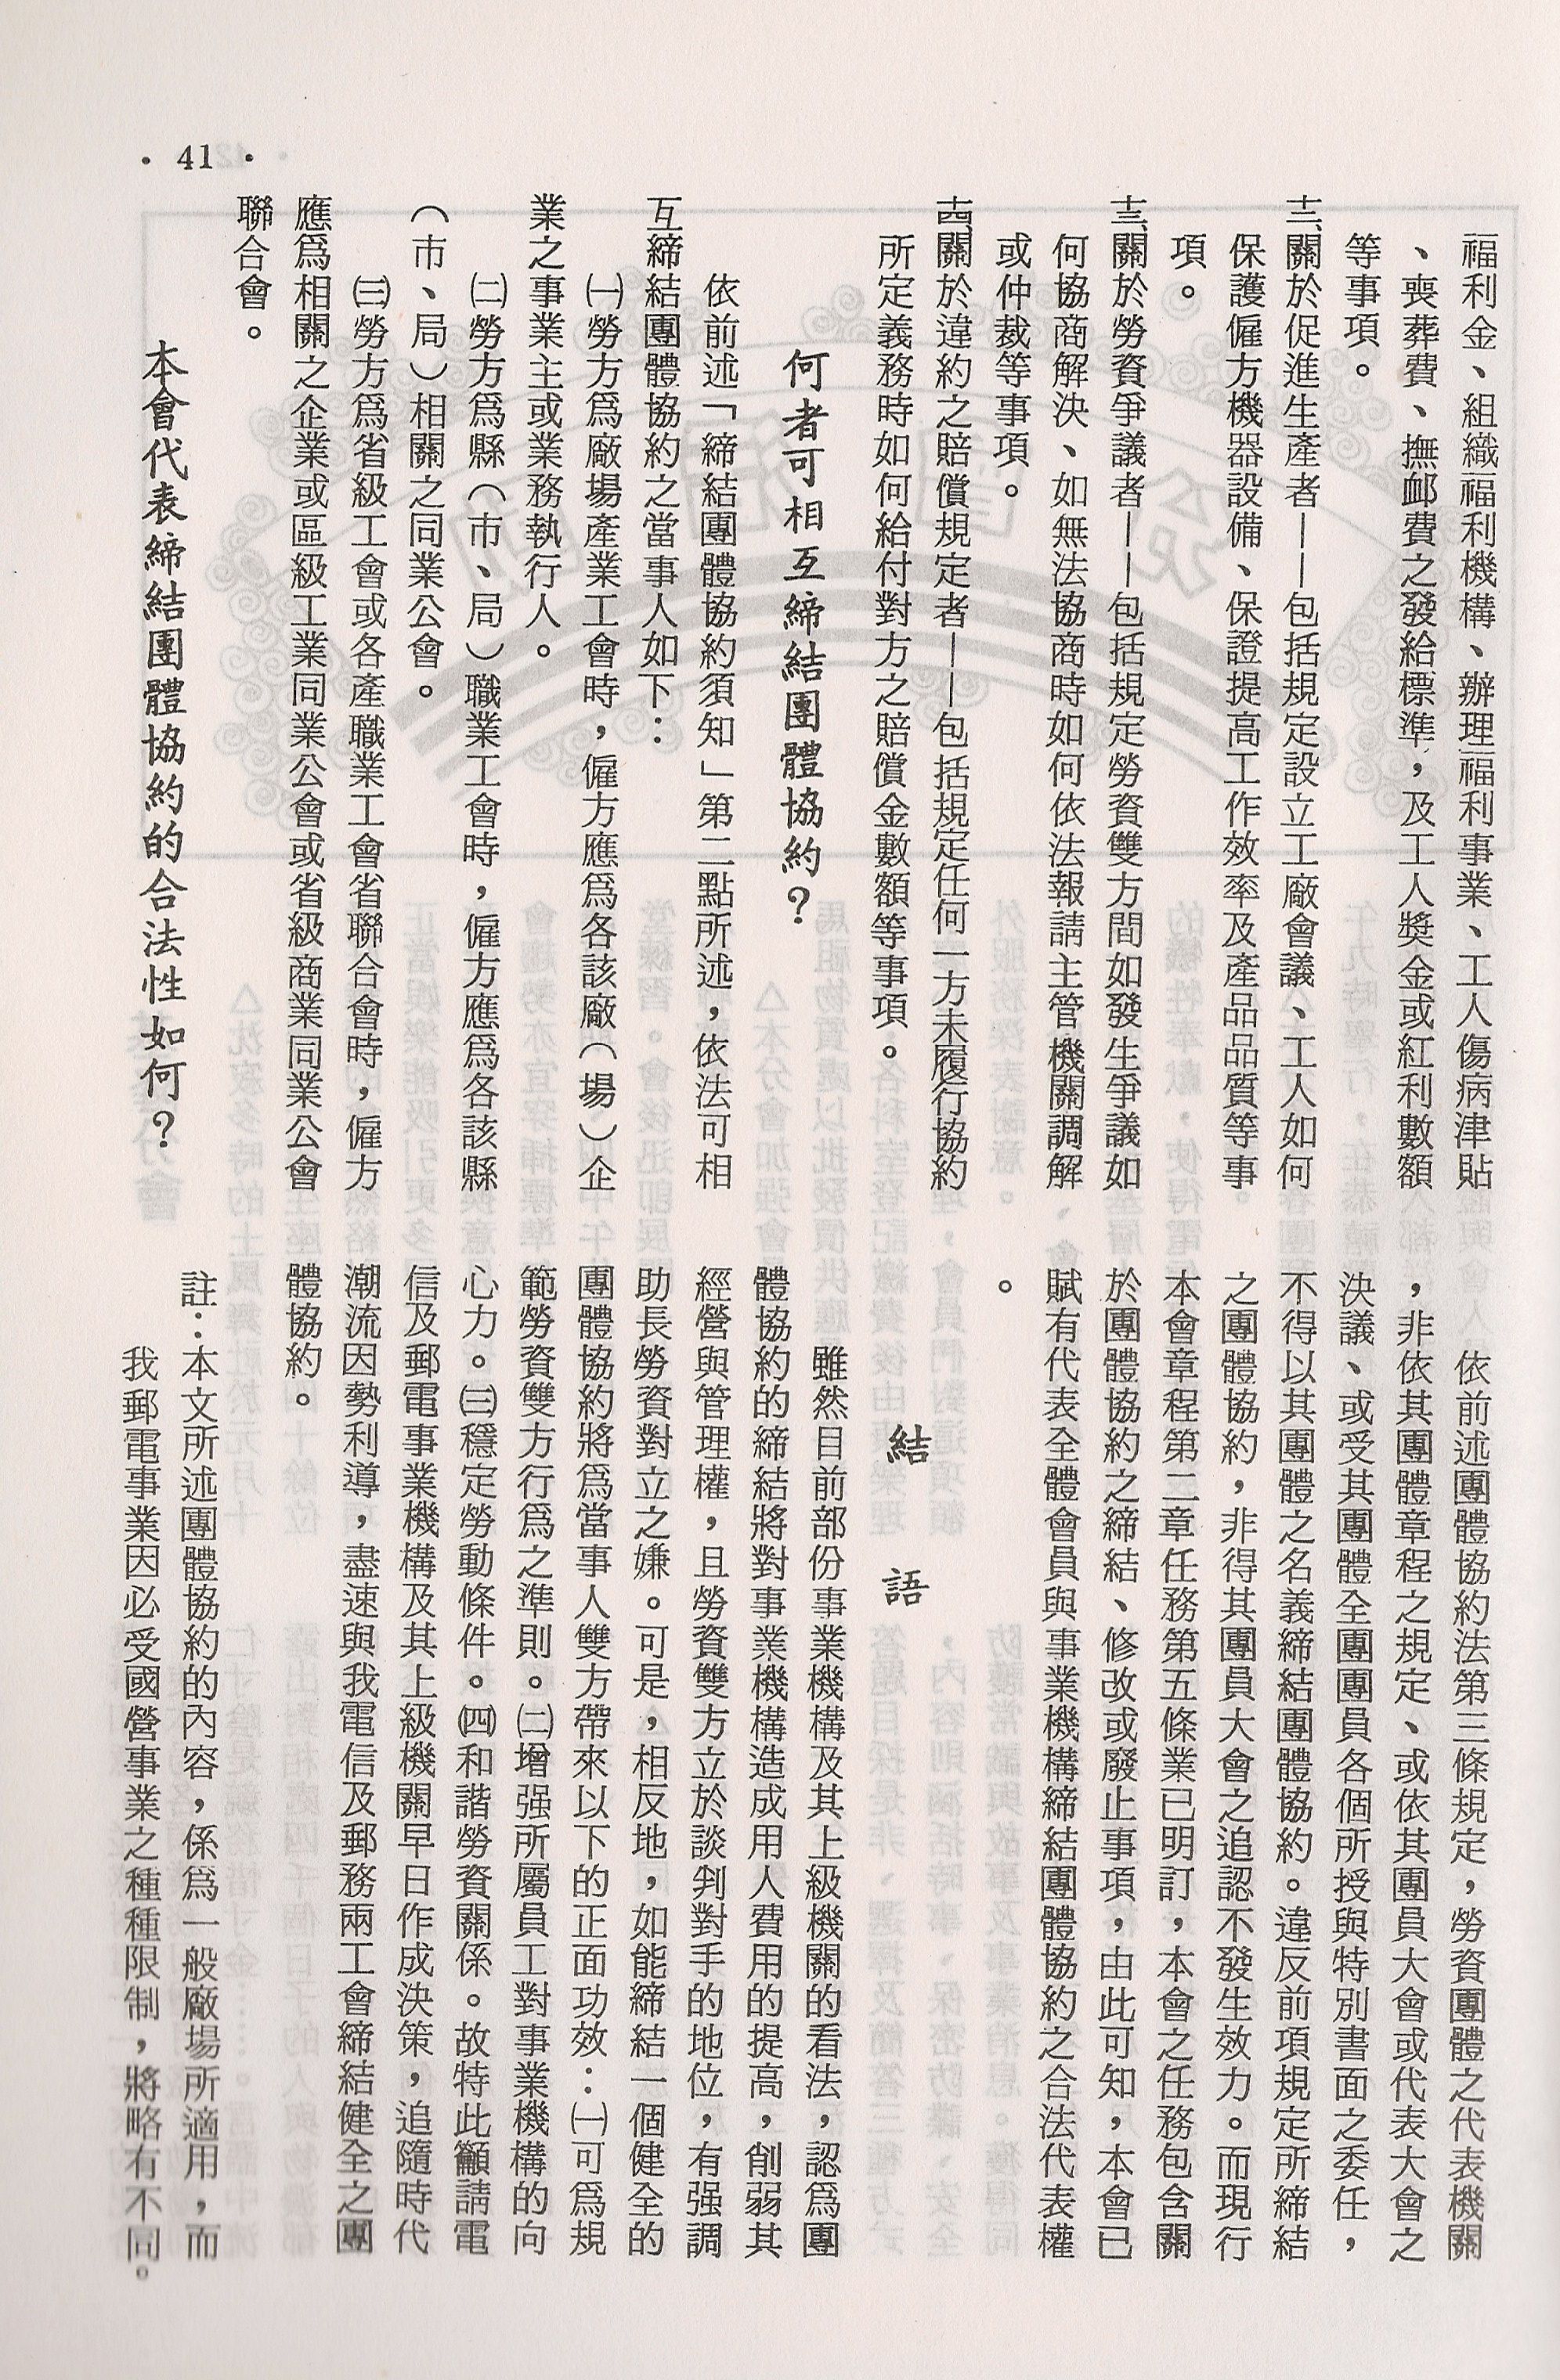 • 41 •
福利金、組織福利機構、辦理福利事業、工人傷病津貼
、喪葬費、撫卹費之發給標準，及工人獎金或紅利數額
等事項。
三關於促進生產者——包括規定設立工廠會議、工人如何
保護僱方機器設備、保證提高工作效率及產品品質等事
項。
三關於勞資爭議者——包括規定勞資雙方間如發生爭議如
何協商解決、如無法協商時如何依法報請主管機關調解
或仲裁等事項。
十四關於違約之賠償規定者——包括規定任何一方未履行協約
所定義務時如何給付對方之賠償金數額等事項。
何者可相互締結團體協約？
依前述「締結團體協約須知」第二點所述，依法可相
互締結團體協約之當事人如下：
㈠勞方為廠場產業工會時，僱方應為各該廠（場）企
業之事業主或業務執行人。
㈡勞方為縣（市、局）職業工會時，僱方應為各該縣
（市、局）相關之同業公會。
㈢勞方為省級工會或各產職業工會省聯合會時，僱方
應為相關之企業或區級工業同業公會或省級商業同業公會
聯合會。
本會代表締結團體協約的合法性如何？
依前述團體協約法第三條規定，勞資團體之代表機關
，非依其團體章程之規定、或依其團員大會或代表大會之
決議、或受其團體全團團員各個所授與特別書面之委任，
不得以其團體之名義締結團體協約。違反前項規定所締結
之團體協約，非得其團員大會之追認不發生效力。而現行
本會章程第二章任務第五條業已明訂，本會之任務包含關
於團體協約之締結、修改或廢止事項，由此可知，本會已
賦有代表全體會員與事業機構締結團體協約之合法代表權
。
結語
雖然目前部份事業機構及其上級機關的看法，認為團
體協約的締結將對事業機構造成用人費用的提高，削弱其
經營與管理權，且勞資雙方立於談判對手的地位，有强調
助長勞資對立之嫌。可是，相反地，如能締結一個健全的
團體協約將為當事人雙方帶來以下的正面功效：㈠可為規
範勞資雙方行為之準則。㈡增强所屬員工對事業機構的向
心力。㈢穩定勞動條件。㈣和諧勞資關係。故特此籲請電
信及郵電事業機構及其上級機關早日作成決策，追隨時代
潮流因勢利導，盡速與我電信及郵務兩工會締結健全之團
體協約。
註：本文所述團體協約的內容，係為一般廠場所適用，而
我郵電事業因必受國營事業之種種限制，將略有不同。